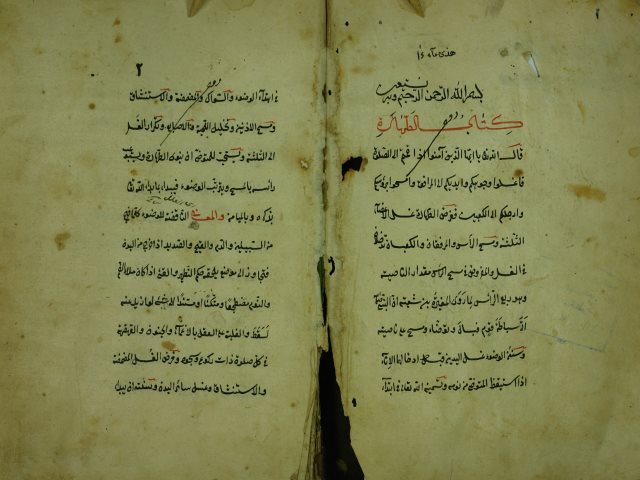 بسم الله الرحمن الرحيم وبه نستعين
كتاب الطهارة
قال الله تعالى يا ايها الذين آمنوا اذا قمتم الى الصلاة
فاغسلوا وجوهكم وايديكم الى المرافق وامسحوا برؤسكم
وارجلكم الى الكعبين ففرض الطهارة غسل الاعضاء
الثلثة ومسح الرأس والمرفقان والكعبان تدخلان
في الغسل والمفروض في مسح الرأس مقدار الناصية
وهو ربع الرأس لما روى المغيرة بن شعبة ان النبي
اتى سباطة قوم فبال وتوضاء ومسح على ناصيته
وسنن الوضوء غسل اليدين قبل ادخالهما الاناء
اذا استيقظ المتوضئ من نومه وتسمية الله تعالى في ابتداء
٢
في ابتداء الوضوء والسواك والمضمضة والاستنشاق
ومسح الاذنين وتخليل اللحية والاصابع وتكرار الغسل
الى الثلثة ويستحب للمتوضئ ان ينوي الطهارة ويستوعب
رأسه بالمسح ويرتب الوضوء فيبداء بما بداء الله تعالى
بذكره وبالميامن والمعاني الناقضة للوضوء كل ما خرج
من السبيلين والدم والقيح والصديد اذا خرج من البدن
فتجاوز الى موضع يلحقه حكم التطهير والقئ اذا كان ملاء الفم
والنوم مضطجعا او متكئا او مستندا الى شئ لو ازيل عنه
لسقط والغلبة على العقل بالاغماء والجنون والقهقهة
في كل صلوة ذات ركوع وسجود وفرض الغسل المضمضة
والاستنشاق وغسل سائر البدن وسنته ان يبدأ